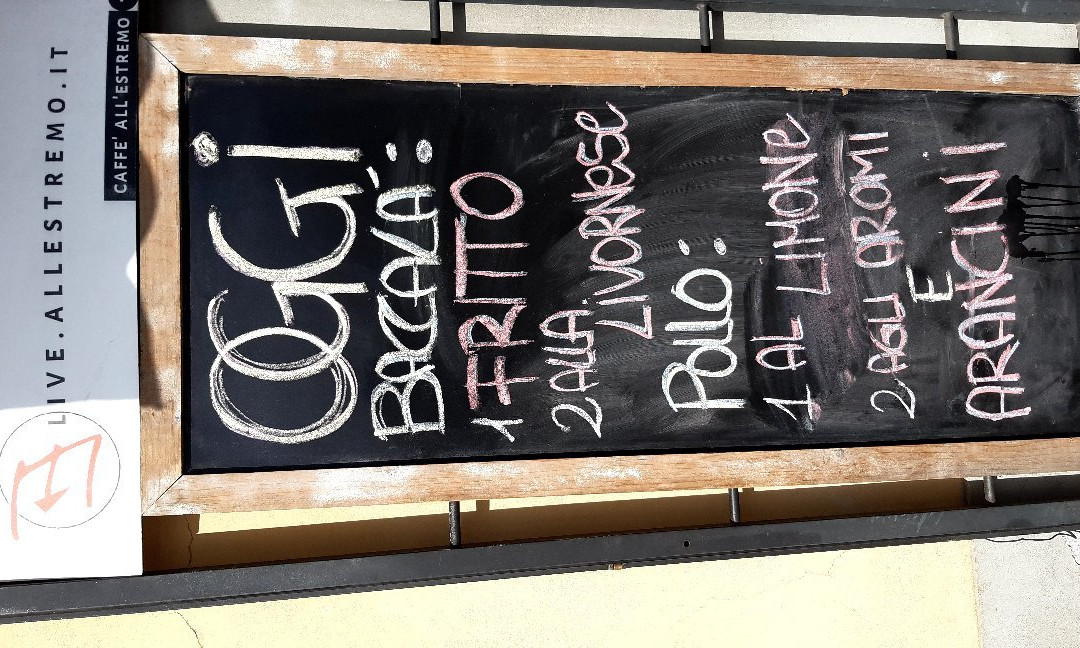 LIVE.ALLESTREMO.IT
CAFFE' ALL'ESTREMO
OGGI
BACCALÀ:
1 FRITTO
2 ALLA
LIVORNESE
POLLO:
1 AL LIMONE
2 AGLI AROMI
E
ARANCINI